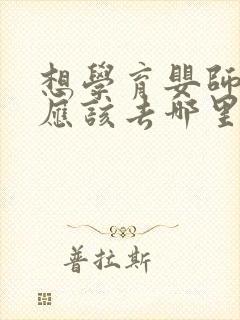 想學育嬰師
應該去哪里
普拉斯